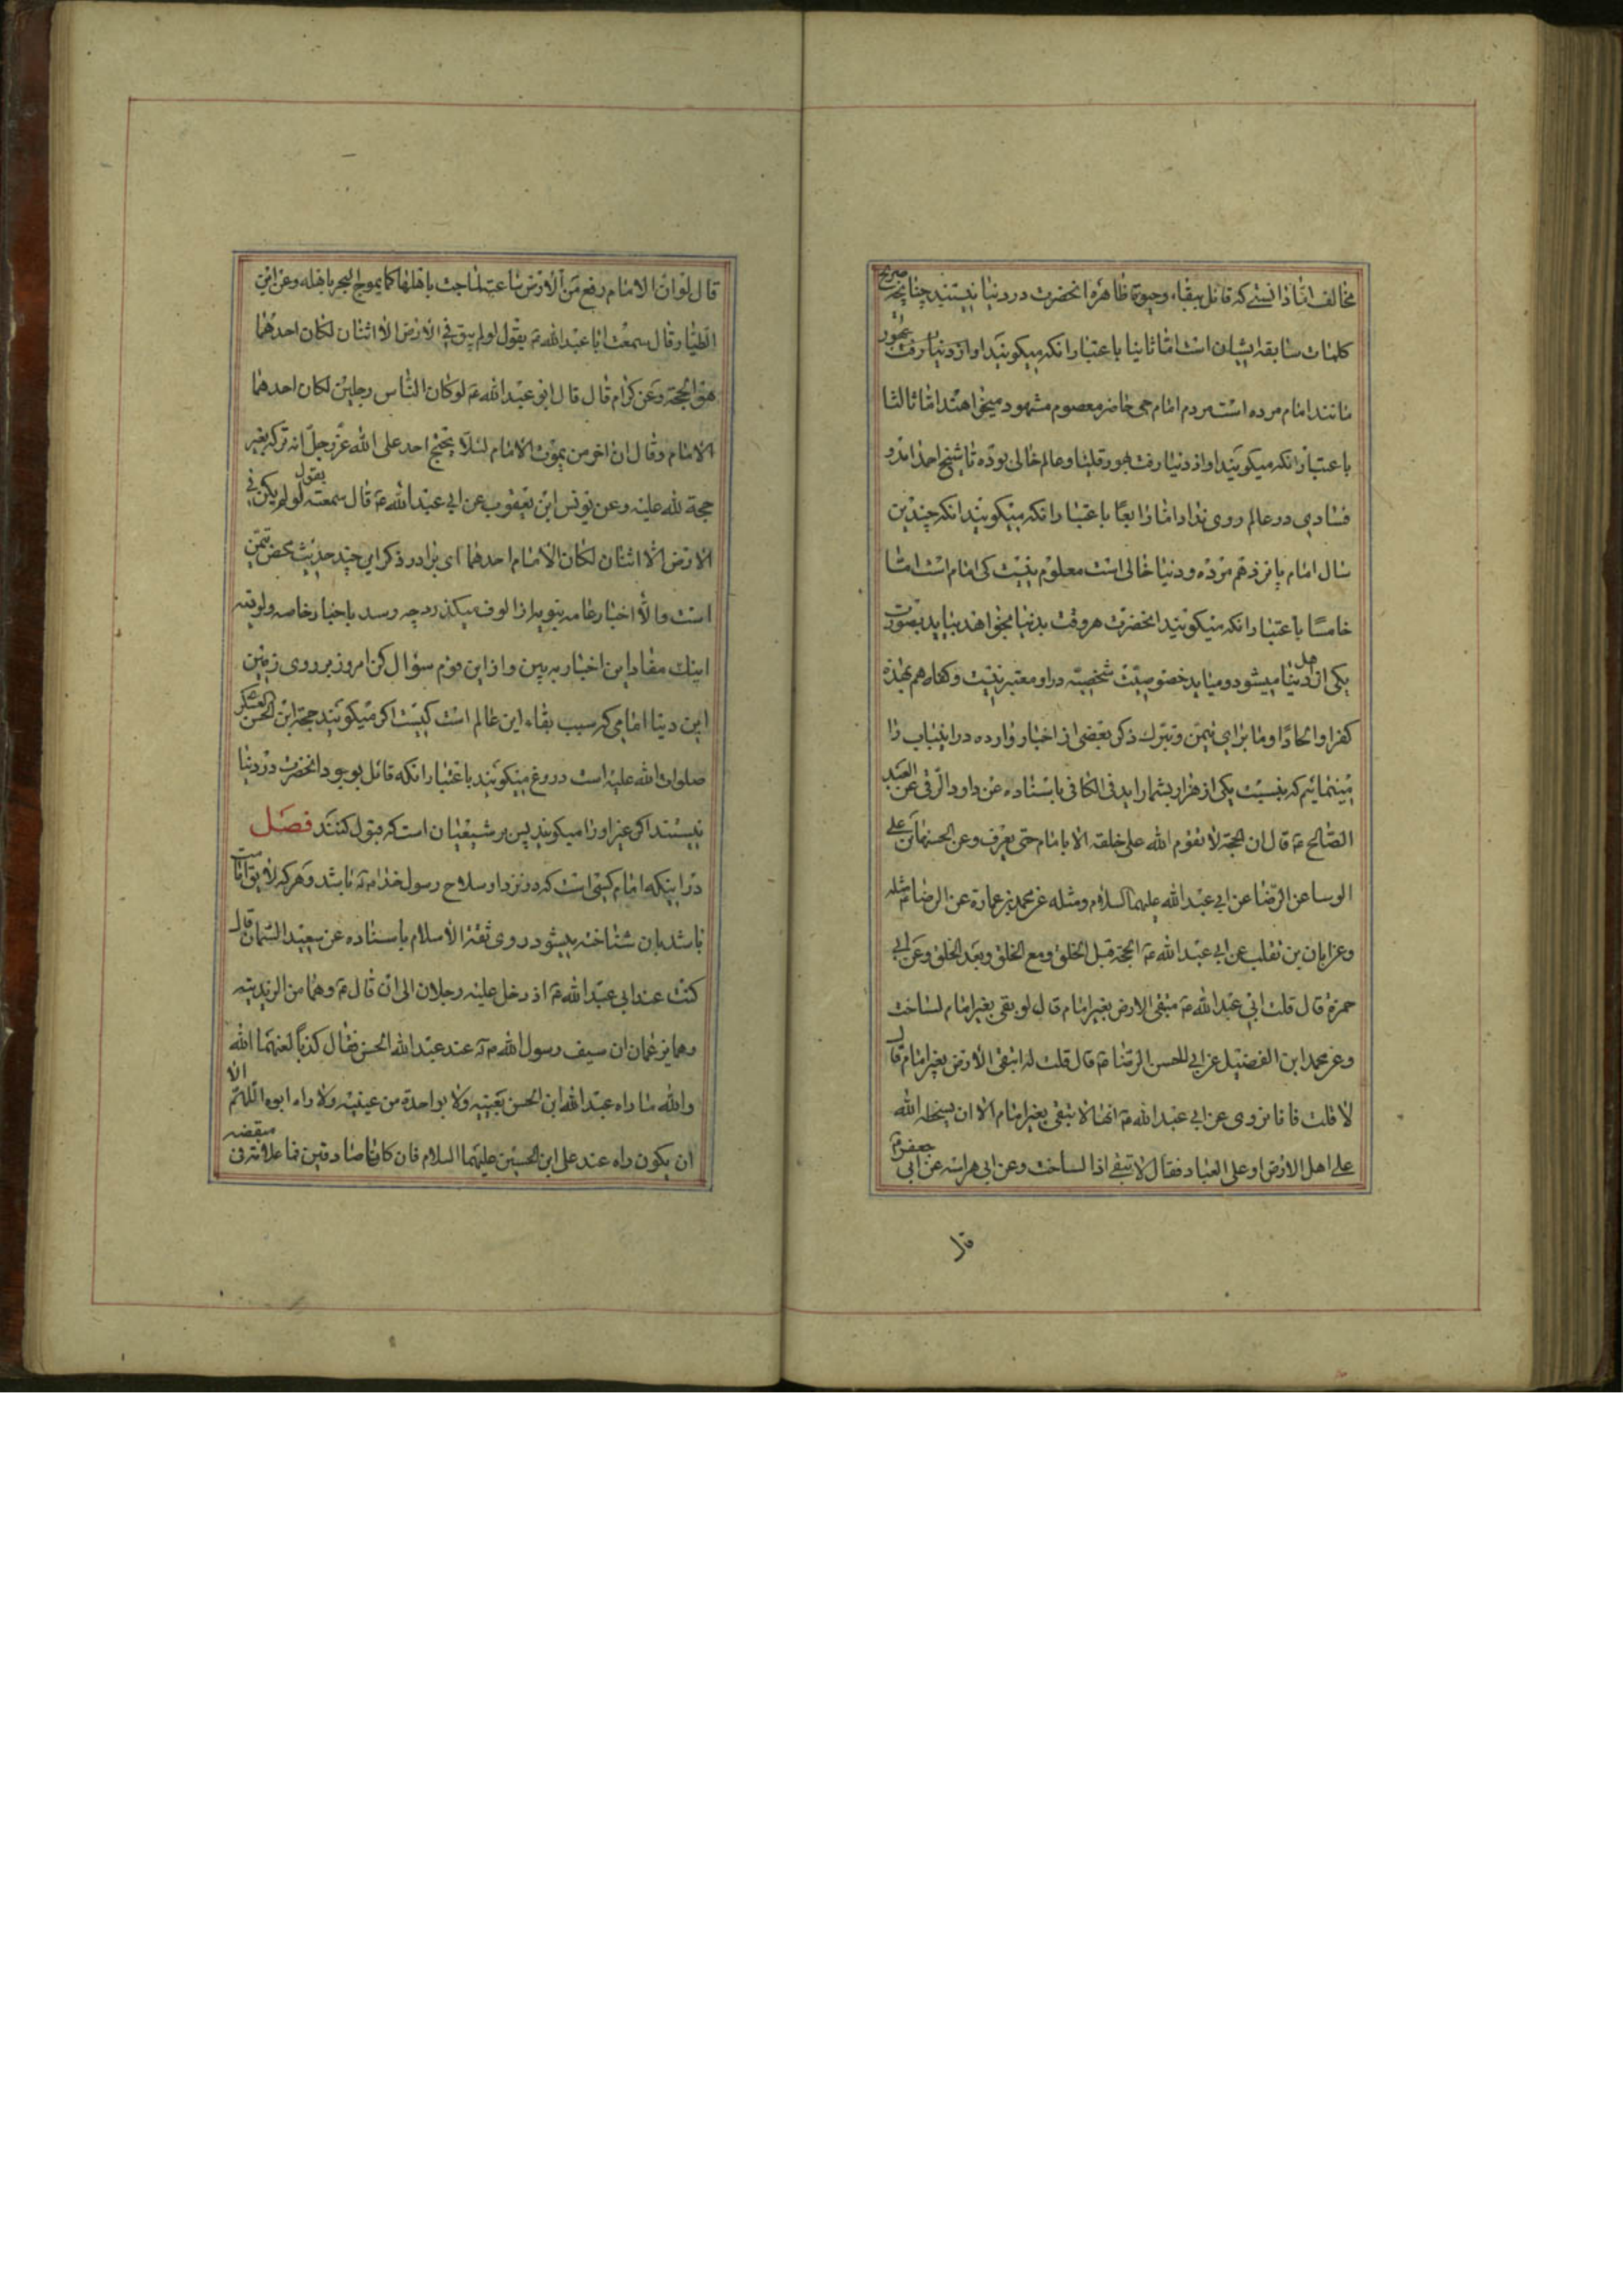 مخالف اما دانستی که قائل ببقاء وحیوة ظاهره انحضرت در دنیا نیستند چنانچه صریح
کلمات سابقه ایشان است اما ثانیا باعتبار انکه میکویند او از دنیا رفت بهور
مانند امام مرده است مردم امام حی حاضر معصوم مشهود میخواهند اما ثالثا
باعتبار انکه میکویند او از دنیا رفت بهورقلیا و عالم خالی بوده تا شیخ احمد امد و
فسادی در عالم روی نداد اما رابعا باعتبار انکه میکویند انکه چندین
سال امام پانزدهم مرده و دنیا خالی است معلوم نیست کی امام است اما
خامسا باعتبار انکه میکویند انحضرت هر وقت بدنیا بخواهد بیاید بصورت
یکی از اهل دنیا میشود و میاید خصوصیت شخصیه در او معتبر نیست وکفاهم بهذه
کفرا والحادا وما برای تیمن وتبرک ذکر بعضی از اخبار وارده در اینباب را
مینمائیم که نسبت یکی از هزار بشمار اید فی الکافی باسناده عن داود الرقی عن العبد
الصالح ع قال ان الحجة لا تقوم الله علی خلقه الا بامام حتی یعرف وعن الحسن بن علی
الوسا عن الرضا عن ابی عبد الله علیهما السلام ومثله عن محمد بن عمارة عن الرضا ع مثله
وعن ابان بن تغلب عن ابی عبد الله ع الحجة قبل الخلق ومع الخلق وبعد الخلق وعن ابی
حمزه قال قلت ابی عبد الله ع تبقی الارض بغیر امام قال لو بقی بغیر امام لساخت
وعن محمد ابن الفضیل عن ابی الحسن الرضا ع قال قلت له اتبقی الارض بغیر امام قال
لا قلت فانا نروی عن ابی عبد الله ع انها لا تبقی بغیر امام الا ان یسخط الله
علی اهل الارض او علی العباد فقال لا تبقی اذا لساخت وعن ابی هراسه عن ابی جعفر ع
قال
قال لو ان الامام رفع من الارض ساعة لماجت باهلها کما یموج البحر باهله وعن ابن
الطیار قال سمعت ابا عبد الله ع یقول لو لم یبق فی الارض الا اثنان لکان احدهما
هو الحجة وعن کرام قال قال ابو عبد الله ع لو کان الناس رجلین لکان احدهما
الامام وقال ان اخر من یموت الامام لئلا یحتج احد علی الله عز وجل انه ترکه بغیر
حجة لله علیه وعن یونس ابن یعقوب عن ابی عبد الله ع قال سمعته یقول لو لم یکن فی
الارض الا اثنان لکان الامام احدهما ای برادر ذکر این چند حدیث محض تیمن
است والا اخبار عامه نبویه از الوف میکذرد چه رسد باخبار خاصه ولویه
اینک مفاد این اخبار به بین و از این قوم سؤال کن امروز بر روی زمین
این دنیا امامی که سبب بقاء این عالم است کیست اکر میکویند حجة ابن الحسن العسکر
صلوات الله علیه است دروغ میکویند باعتبار انکه قائل بوجود انحضرت در دنیا
نیستند اکر غیر اورا میکویند پس بر شیعیان است که قبول کنند فصل
در اینکه امام کسی است که در نزد او سلاح رسول خدا ص باشد و هر که لایق امامت
باشد بان شناخته میشود روی ثقة الاسلام باسناده عن سعید السمان قال
کنت عند ابی عبد الله ع اذ دخل علیه رجلان الی ان قال ع وهما من الزیدیه
وهما یزعمان ان سیف رسول الله ص عند عبد الله الحسن فقال کذبا لعنهما الله
والله ما راه عبد الله ابن الحسن بعینیه ولا بواحدة من عینیه ولا راه ابوه اللهم الا
ان یکون راه عند علی ابن الحسین علیهما السلام فان کانا صادقین فما علامة فی مقبضه